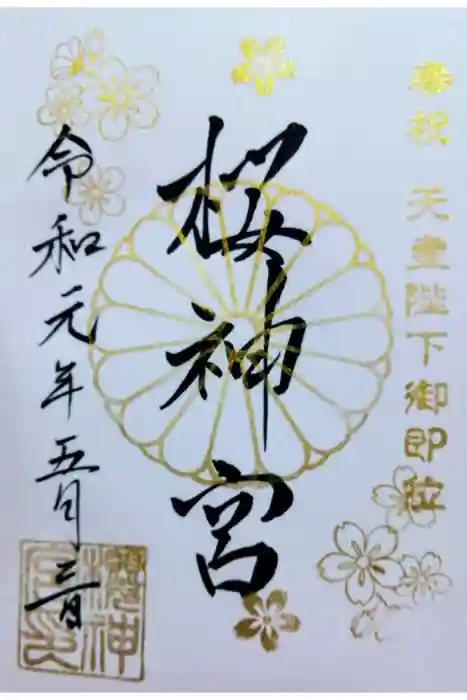 奉祝 天皇陛下御即位
桜神宮
令和元年五月三日